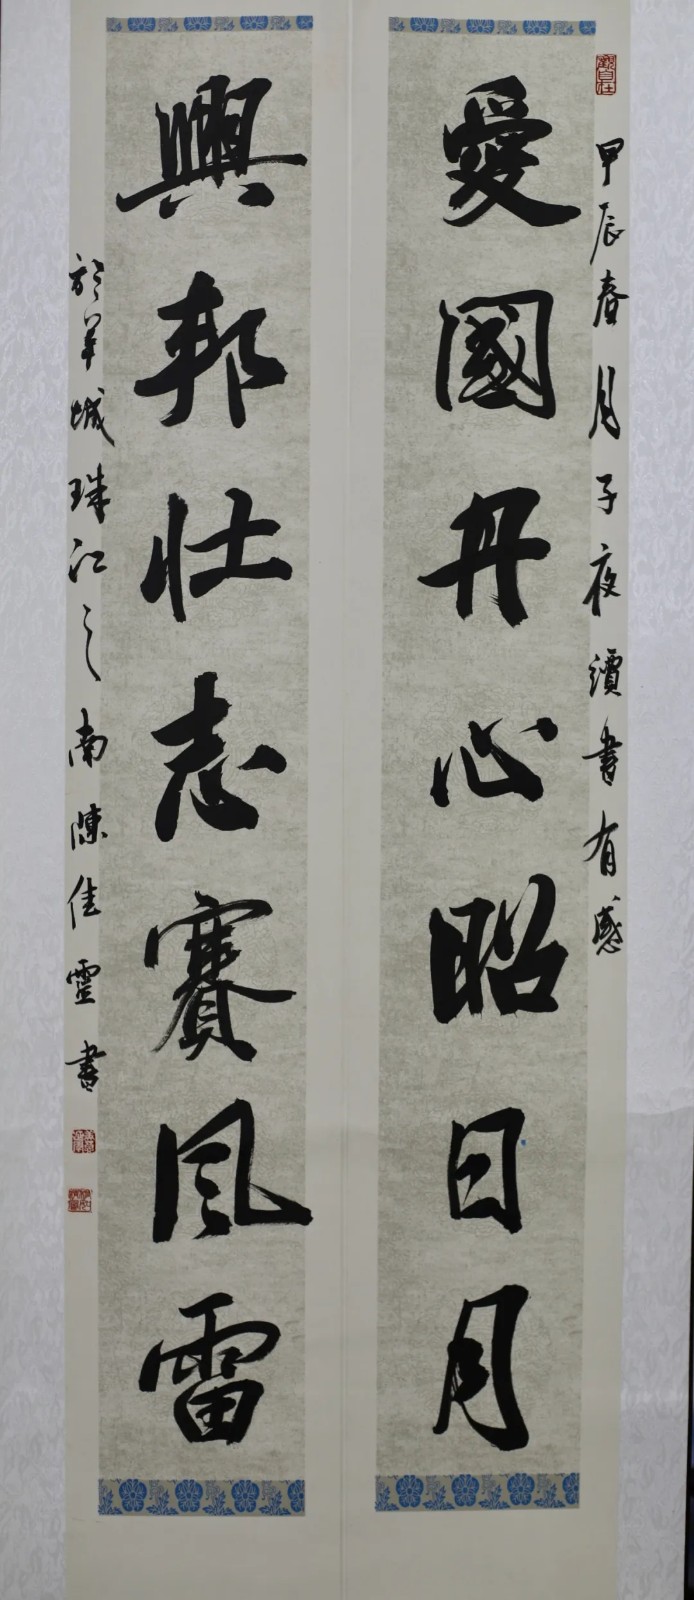 甲辰春月子夜讀書有感
愛國丹心昭日月
興邦壯志賽風雷
於羊城珠江之南陳佳靈書